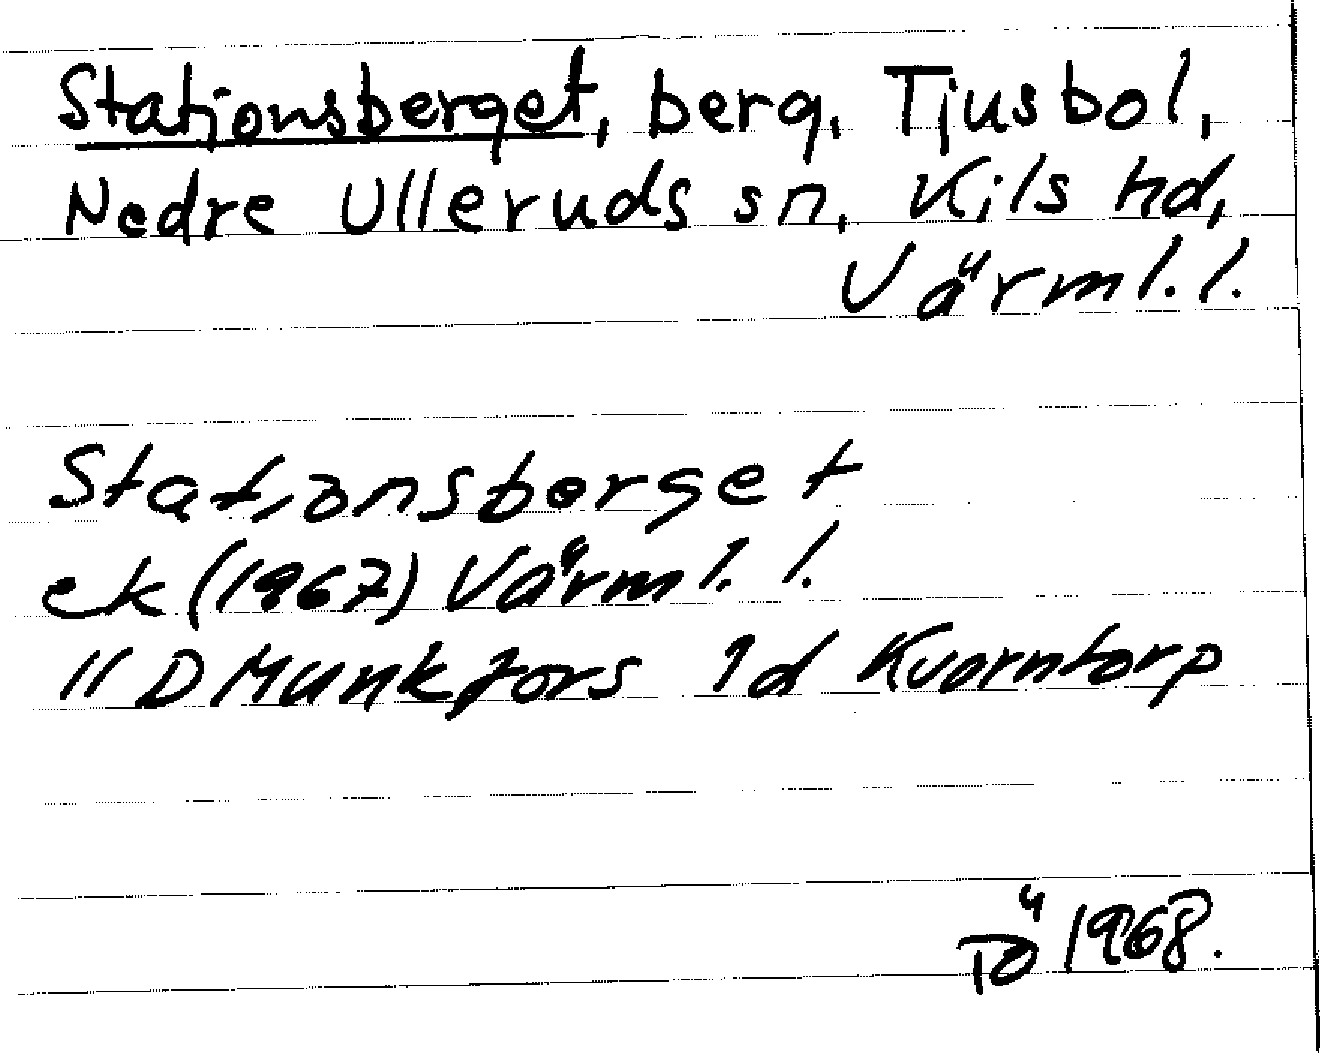 Stationsberget, berg, Tjusbol,
Nedre Ulleruds sn, Kils hd,
Värml. l.
Stationsberget
ek (1967) Värml. l.
11 D Munkfors 1d Kvarntorp
TÖ 1968.